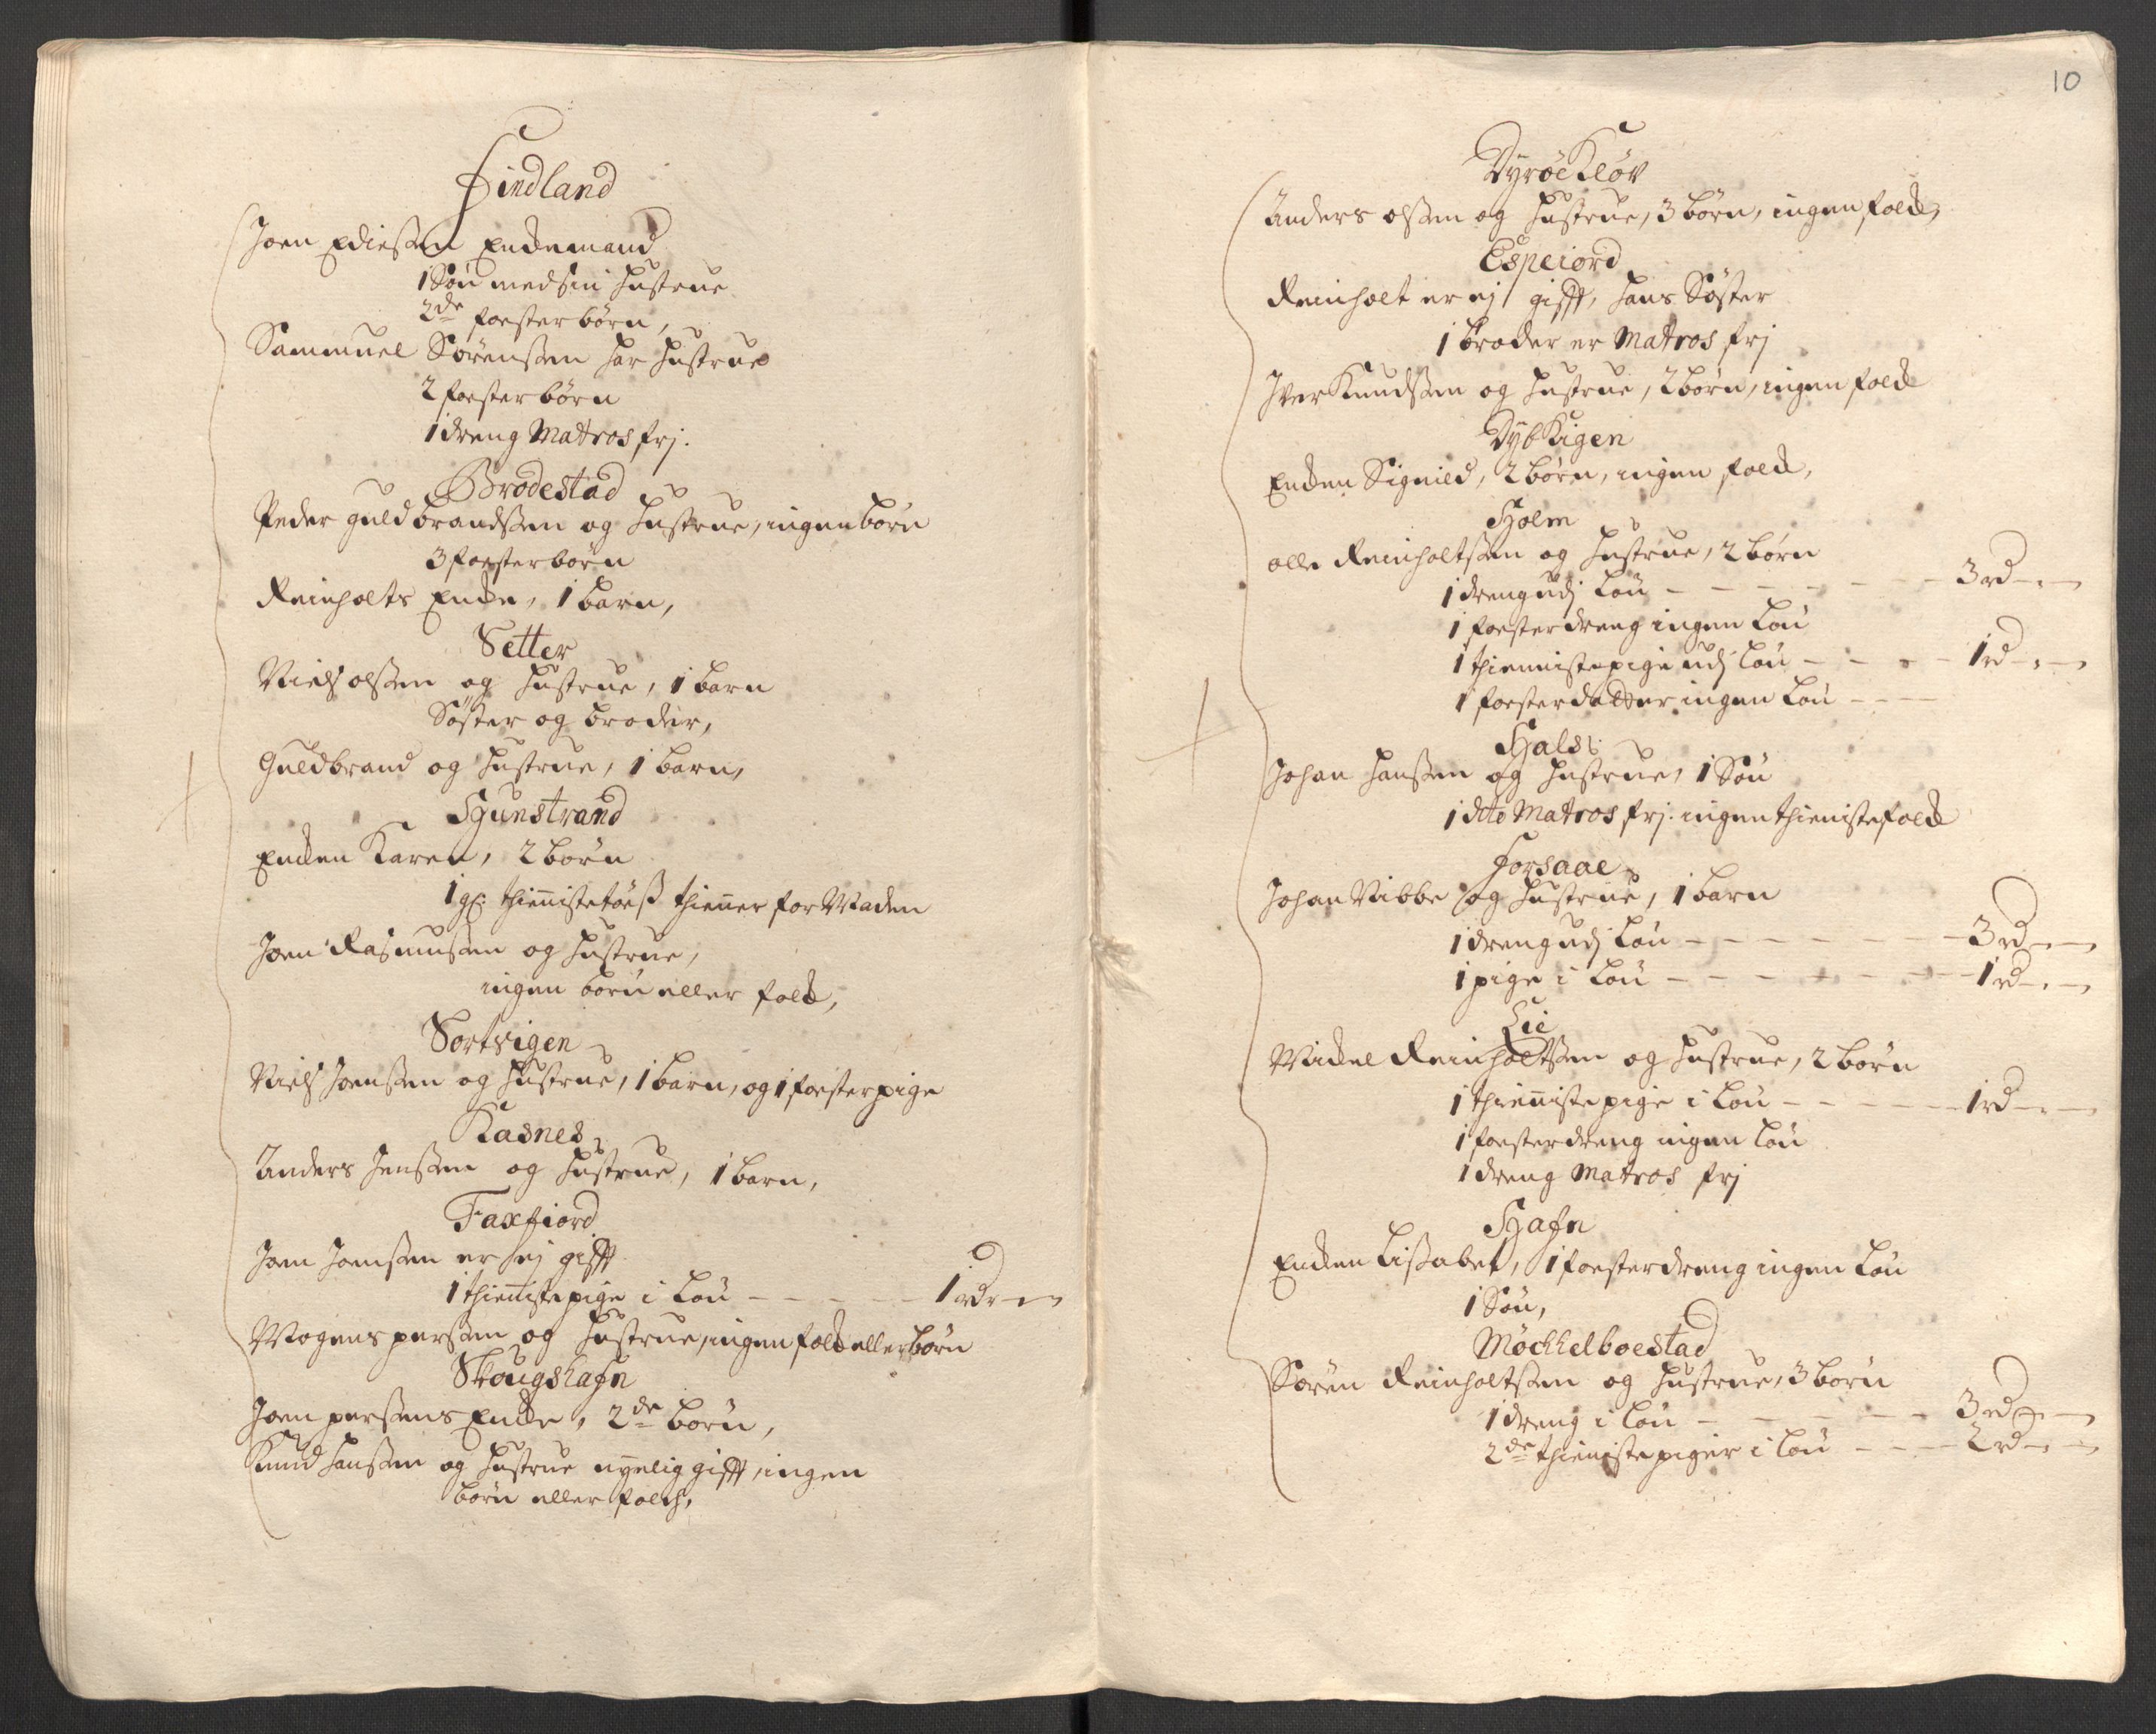 Findland
Joen Ediessen Enckemand
1 Søn med sin hustrue
2de fosterbørn,
Sammuel Sørenssen har hustrue
2 fosterbørn
1 dreng Matros frj.
Brodestad
Peder Guldbrandssen og hustrue, ingen børn
3 fosterbørn
Reinholts Encke, 1 barn,
Setter
Niels olssen og hustrue, 1 barn
Søster og broder,
Guldbrand og hustrue, 1 barn,
Gunstrand
Encken Karen, 2 børn
1 gl: thiennistetøes thienner for Maden
Joen Rasmussen og hustrue,
ingen børn eller folck,
Sortvigen
Niels Joenssen og hustrue, 1 barn, og 1 fosterpige
Kasnes
Anders Jenssen og hustrue, 1 barn,
Faxfiord
Joen Joenssen er ej gifft
1 thiennistepige i Løn - - - - - 1 rd - - -
Mogens perssen og hustrue, ingen folck eller børn
Skougshafn
Joen perssens Encke, 2de børn,
Knud hanssen og hustrue nyelig gifft, ingen
børn eller folch,
10
Dyrøe Kløv
Anders olssen og hustrue, 3 børn, ingen folck,
Espeiord
Reinholt er ej gifft, hans Søster
1 broder er Matros frj
Iver Knudssen og hustrue, 2 børn, ingen folck
Dybvigen
Encken Signild, 2 børn, ingen folck,
Holm
olle Reinholtssen og hustrue, 2 børn
1 dreng udj Løn - - - - - - 3 rd - - -
1 fosterdreng ingen Løn
1 thiennistepige udj løn - - - - 1 rd - - -
1 fosterdatter ingen Løn - - -
Hals
Johan hanssen og hustrue, 1 Søn
1 dito Matros frj: ingen thienistefolck
Forsaae
Johan Vibbe og hustrue, 1 barn
1 dreng udj Løn - - - - - - 3 rd - - -
1 pige i Løn - - - - - - 1 rd - - -
Lie
Mickel Reinholtssen og hustrue, 2 børn
1 thiennistepige i Løn - - - - - 1 rd - - -
1 fosterdreng ingen Løn
1 dreng Matros frj
Hafn
Encken Lissabet, 1 fosterdreng ingen Løn
1 Søn,
Møchhelboestad
Søren Reinholtssen og hustrue, 3 børn
1 dreng i løn - - - - - 3 rd - - -
2de thienistepiger i løn - - - - 2 rd - - -